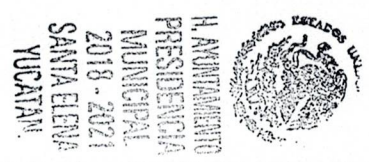 ESTADOS UNI
H. AYUNTAMIENTO
PRESIDENCIA
MUNICIPAL
2018 - 2021
SANTA ELENA
YUCATAN.